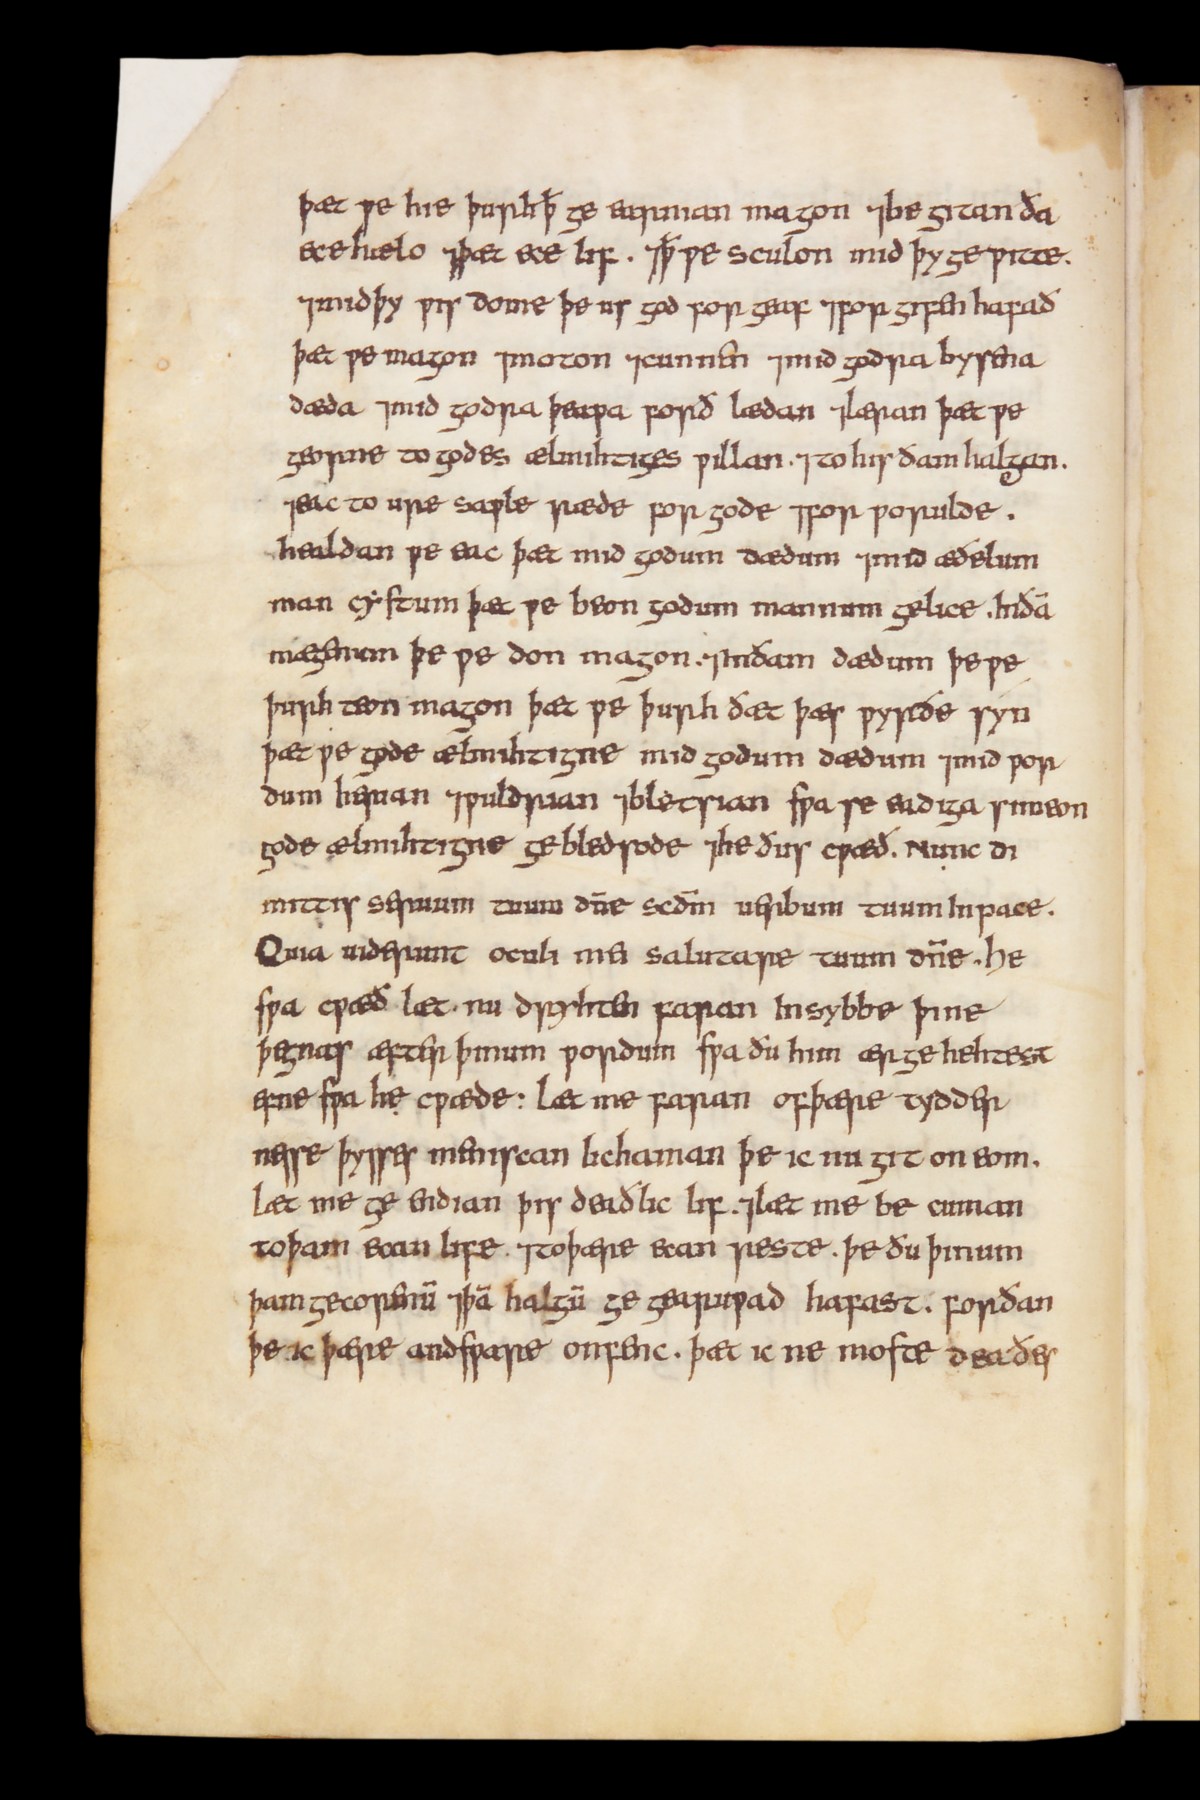 þæt ƿe hie þurh þ̄ ge earnian magon ⁊be gitan ða
ece hælo ⁊þæt ece lif . ⁊þ̄ ƿe sculon mid þy ge ƿitte .
⁊mid þy ƿis dome þe us god for geaf ⁊for gifen hafað
þæt ƿe magon ⁊moton ⁊cunnen ⁊mid godra bysena
dæda ⁊mid godra þeaƿa forð lædan ⁊læran þæt ƿe
georne to godes ælmihtiges ƿillan . ⁊to his ðam halgan .
⁊eac to ure saƿle ræde for gode ⁊for ƿorulde .
healdan ƿe eac þæt mid godum dædum ⁊mid æðelum
man cystum þæt ƿe beon godum mannum gelice . In ðā
mægenum þe ƿe don magon . ⁊In ðam dædum þe ƿe
þurh teon magon þæt ƿe þurh ðæt þæs ƿyrðe syn
þæt ƿe gode ælmihtigne mid godum dædum ⁊mid ƿor
dum herian ⁊ƿuldrian ⁊bletsian sƿa se eadiga simeon
gode ælmihtigne ge bledsode ⁊he ðus cƿæð . Nunc di
mittis seruum tuum dn̄e scdm̄ uerbum tuum In pace .
Quia uiderunt oculi mei salutare tuum dn̄e . he
sƿa cƿæð læt . nu dryhten faran In sybbe þine
þegnas æfter þinum ƿordum sƿa ðu him ær ge hehtest
efne sƿa he cƿæde : Læt me faran of þære tydder
nesse þysses meniscan lichaman þe ic nu git on eom .
Læt me ge endian þis deaðlic lif . ⁊læt me be cuman
to þam ecan life . ⁊to þære ecan reste . þe ðu þinum
þam gecorenū ⁊þā halgū ge gearuƿad hafast . forðan
þe ic þære andsƿare onfenc . þæt ic ne moste deaðes